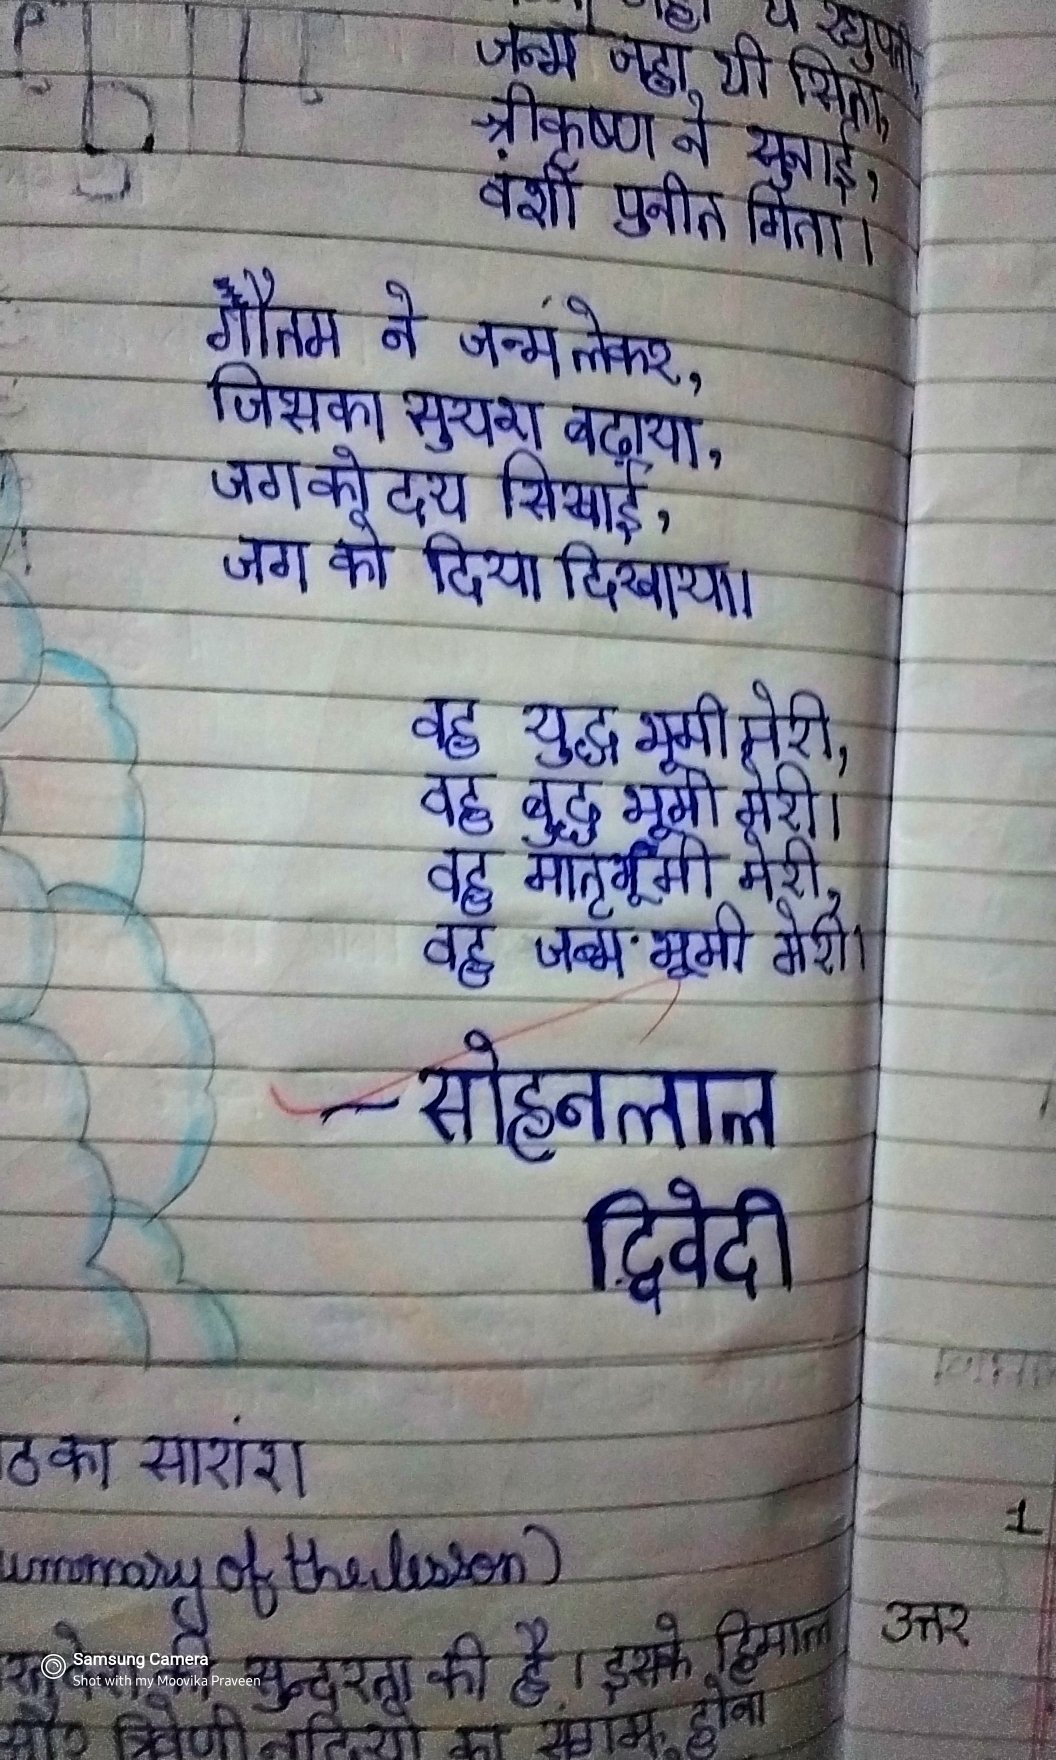 जन्मे जहा थे रघुपती,
जन्मी जहा थी सिता,
श्रीकृष्ण ने सुनाई,
वंशी पुनीत गिता।
गौतम ने जन्म लेकर,
जिसका सुयश बढ़ाया,
जग को दया सिखाई,
जग को दिया दिखाया।
वह युद्ध भूमी मेरी,
वह बुद्ध भूमी मेरी।
वह मातृभूमी मेरी,
वह जन्म भूमी मेरी।
– सोहनलाल
द्विवेदी
ठ का सारांश
ummary of the lesson)
1
उत्तर
सुन्दरता की है। इसके हिमाल
और त्रिवेणी नदियो का संगम होना
Samsung Camera
Shot with my Moovika Praveen